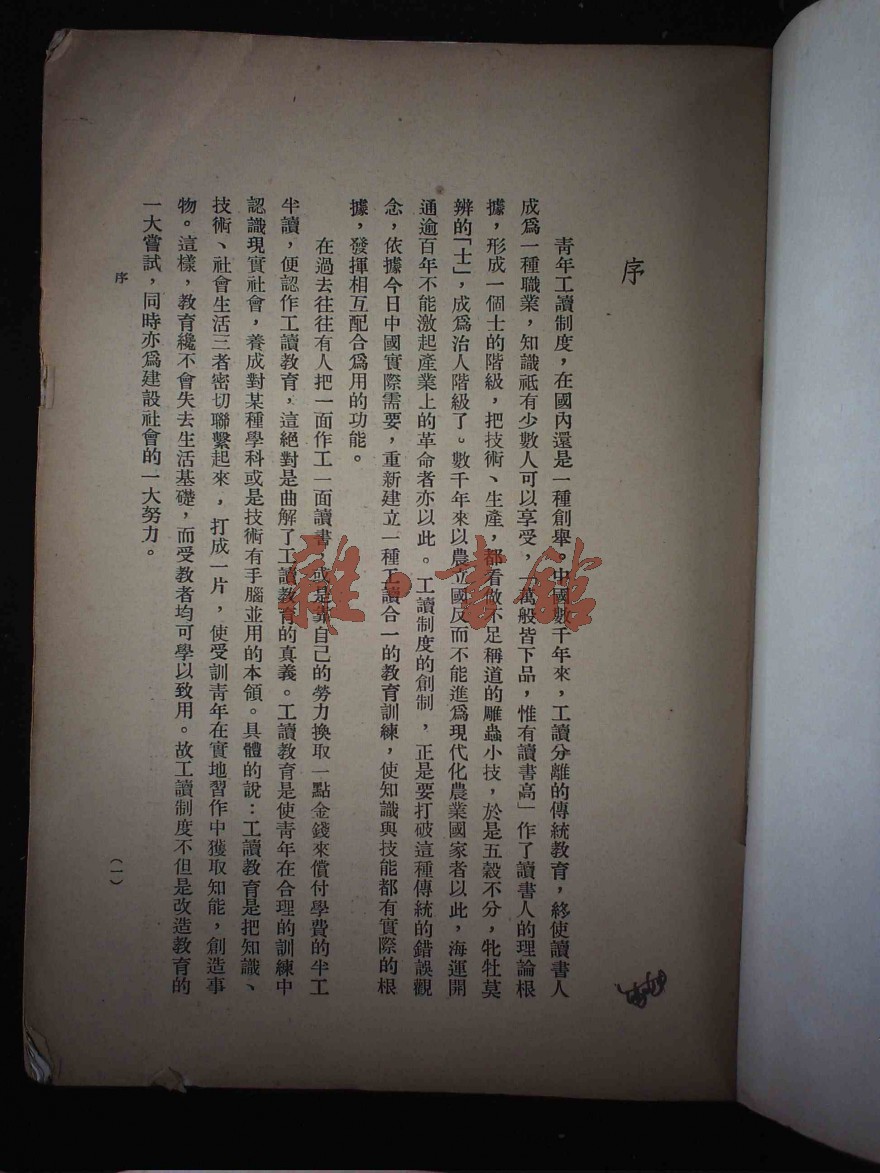 序
青年工讀制度，在國內還是一種創舉。中國數千年來，工讀分離的傳統教育，終使讀書人
成爲一種職業，知識祇有少數人可以享受，「萬般皆下品，惟有讀書高」作了讀書人的理論根
據，形成一個士的階級，把技術、生產，都看做不足稱道的雕蟲小技，於是五穀不分，牝牡莫
辨的「士」，成爲治人階級了。數千年來以農立國反而不能進爲現代化農業國家者以此，海運開
通逾百年不能激起產業上的革命者亦以此。工讀制度的創制，正是要打破這種傳統的錯誤觀
念，依據今日中國實際需要，重新建立一種工讀合一的教育訓練，使知識與技能都有實際的根
據，發揮相互配合爲用的功能。
在過去往往有人把一面作工一面讀書，或是靠自己的勞力換取一點金錢來償付學費的半工
半讀，便認作工讀教育，這絕對是曲解了工讀教育的真義。工讀教育是使青年在合理的訓練中
認識現實社會，養成對某種學科或是技術有手腦並用的本領。具體的說：工讀教育是把知識、
技術、社會生活三者密切聯繫起來，打成一片，使受訓青年在實地習作中獲取知能，創造事
物。這樣，教育纔不會失去生活基礎，而受教者均可學以致用。故工讀制度不但是改造教育的
一大嘗試，同時亦爲建設社會的一大努力。
序
（一）
雜·書館